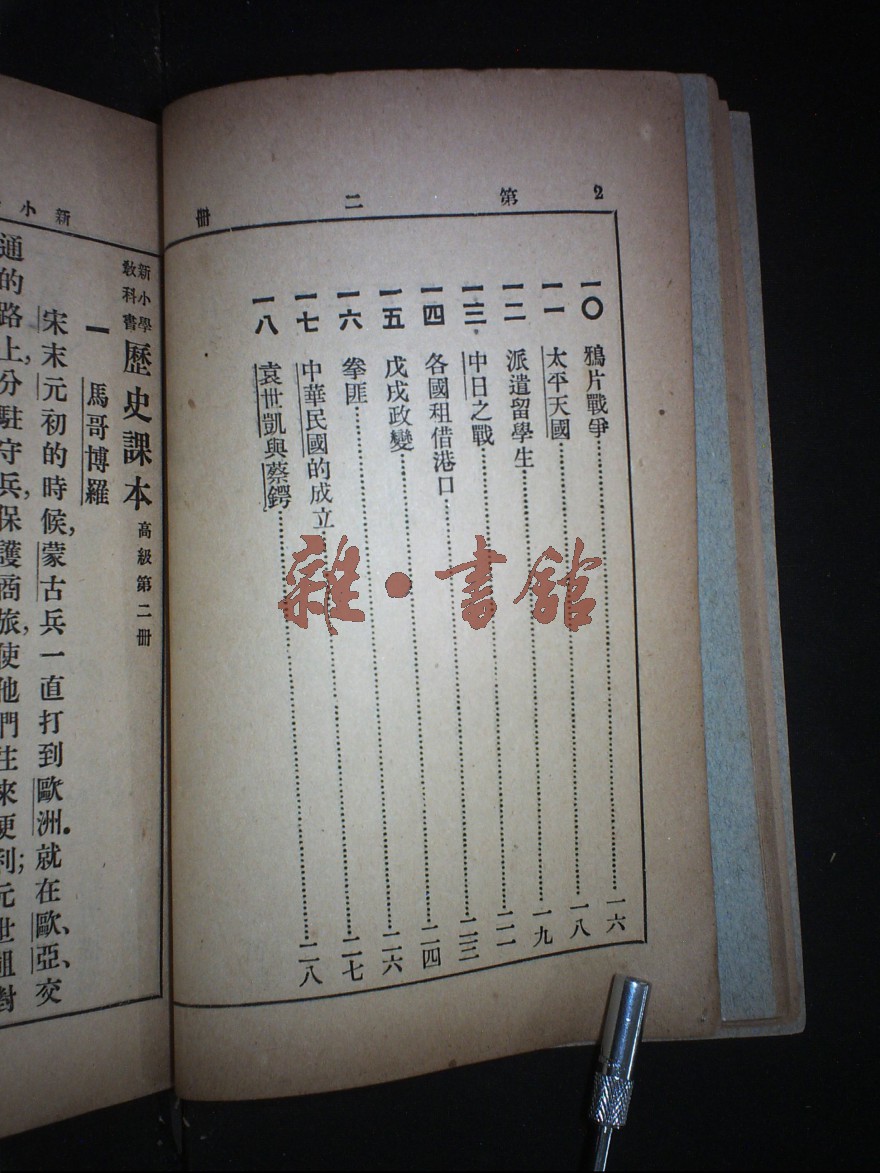 2 第二冊
一〇 鴉片戰爭……一六
一一 太平天國……一八
一二 派遣留學生……一九
一三 中日之戰……二一
一四 各國租借港口……二三
一五 戊戌政變……二四
一六 拳匪……二六
一七 中華民國的成立……二七
一八 袁世凱與蔡鍔……二八
新小
新小學教科書 歷史課本 高級第二冊
一 馬哥博羅
宋末元初的時候,蒙古兵一直打到歐洲。就在歐、亞、交
通的路上,分駐守兵,保護商旅,使他們往來便利;元世祖對
雜·書館